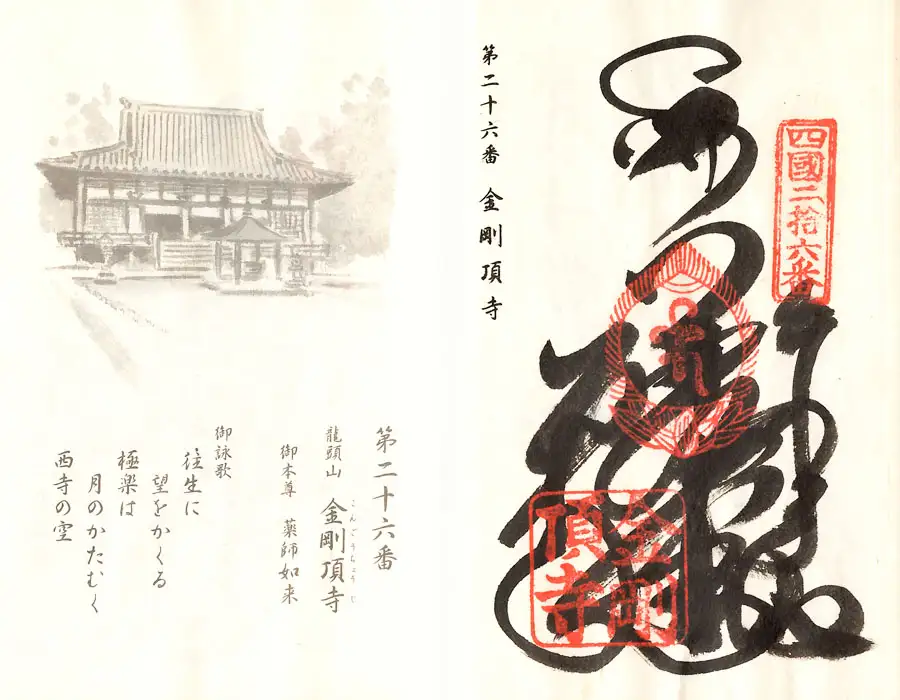 四國二拾六番
金剛
頂寺
第二十六番 金剛頂寺
第二十六番
龍頭山 金剛頂寺
こんごうちょうじ
御本尊 薬師如来
御詠歌
往生に
望をかくる
極楽は
月のかたむく
西寺の空